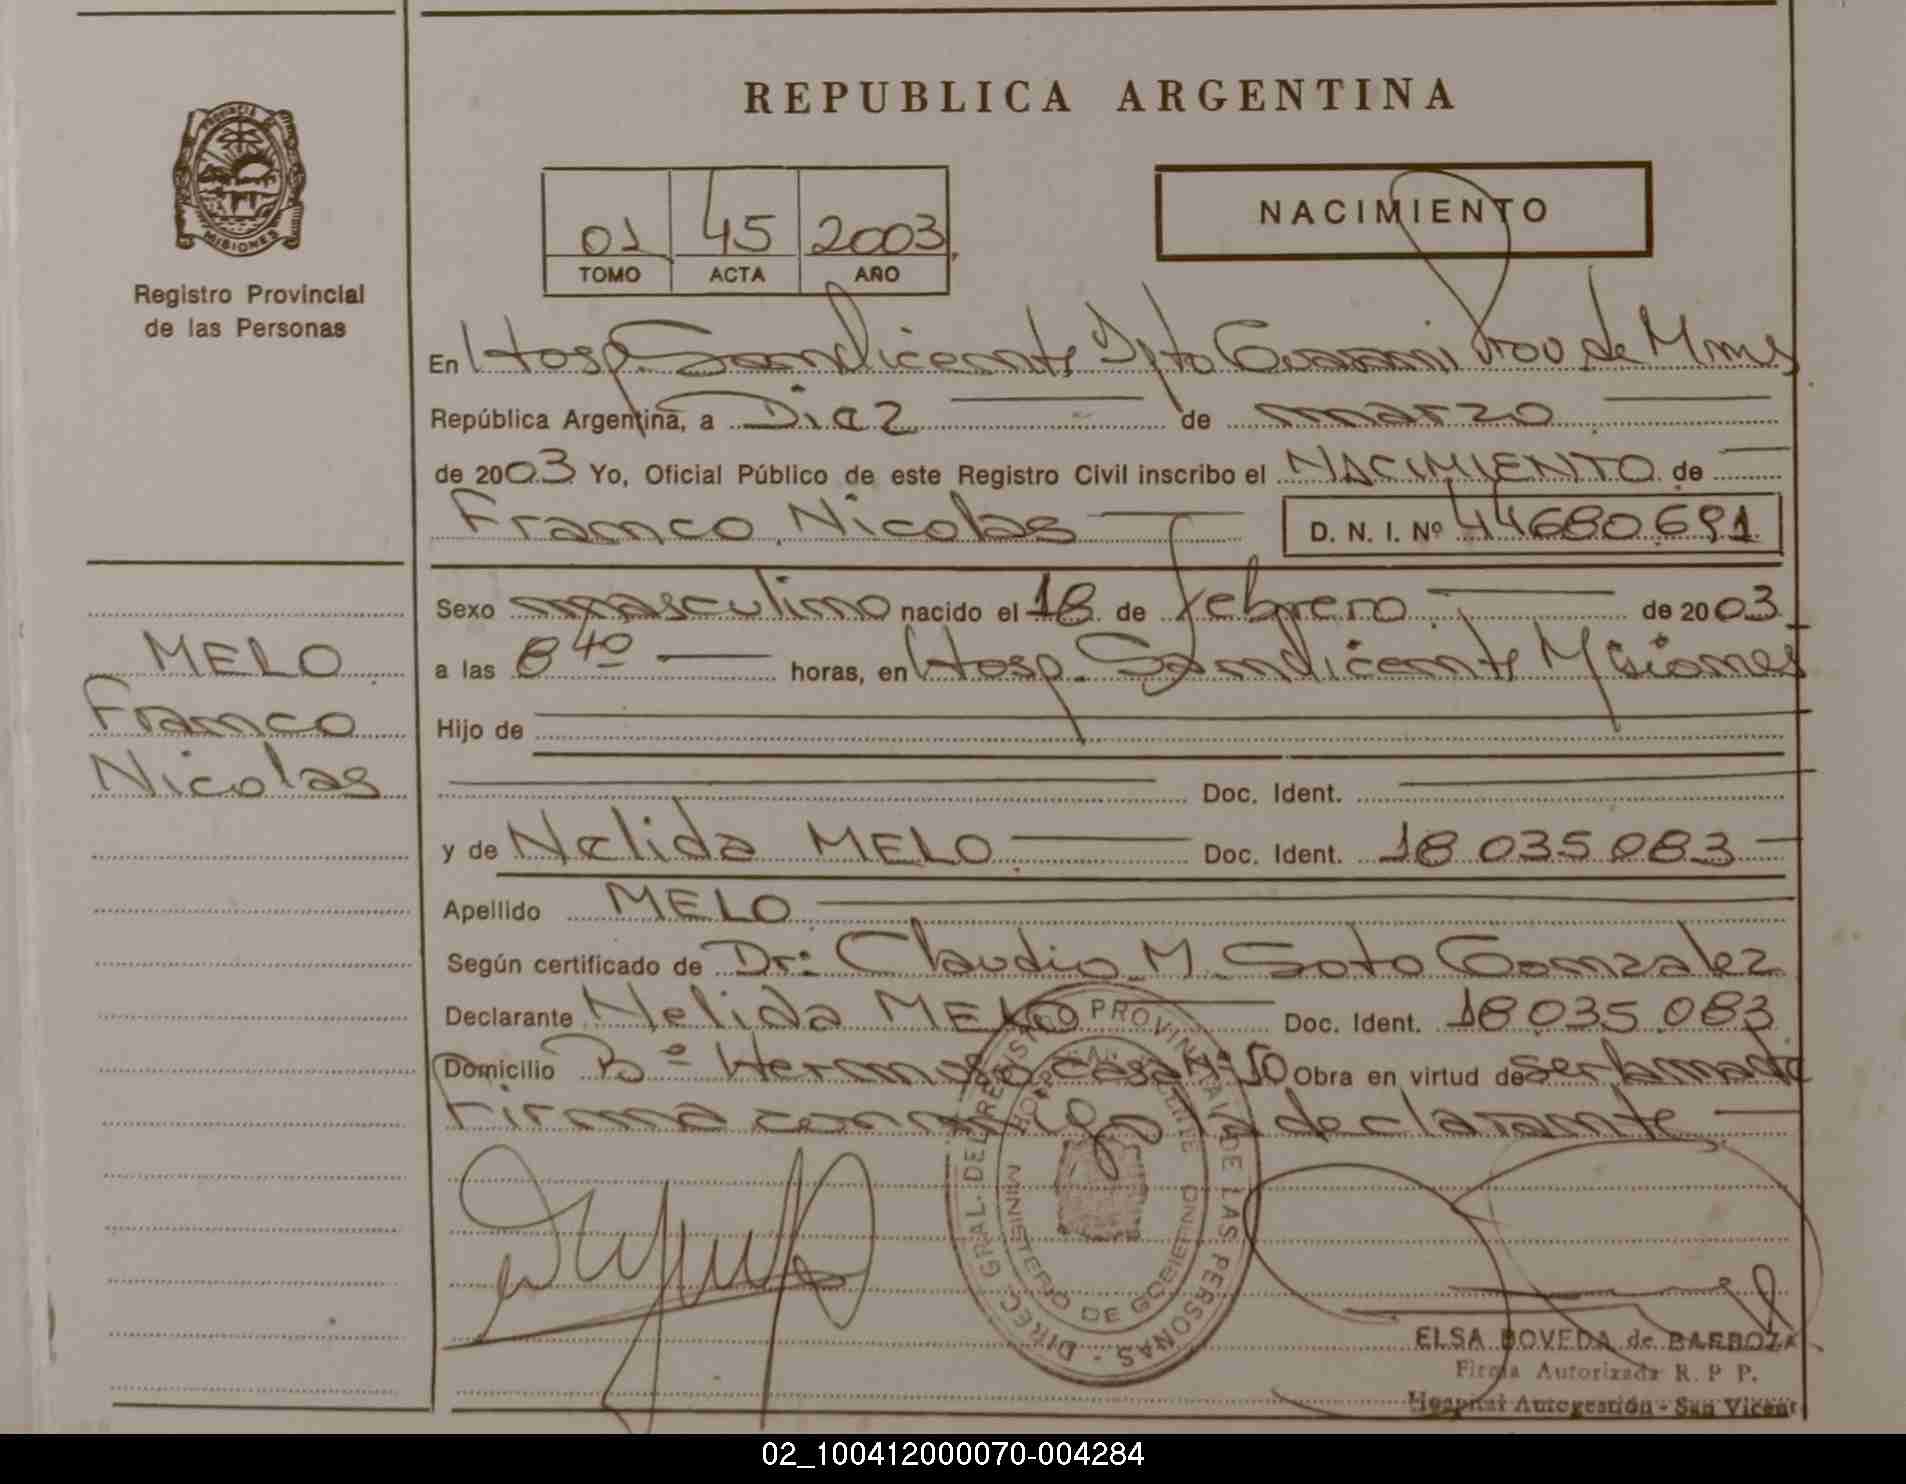 REPUBLICA ARGENTINA
PROVINCIA DE
MISIONES
Registro Provincial
de las Personas
01 45 2003
TOMO ACTA AÑO
NACIMIENTO
En Hosp. San Vicente Dpto Guarani Prov de Mnes
República Argentina, a Diez de marzo
de 2003 Yo, Oficial Público de este Registro Civil inscribo el NACIMIENTO de
Franco Nicolas D. N. I. Nº 44680691
Sexo masculino nacido el 18 de febrero de 2003
a las 8 40 horas, en Hosp. San Vicente Misiones
Hijo de
Doc. Ident.
y de Nelida MELO Doc. Ident. 18 035 083
Apellido MELO
Según certificado de Dr: Claudio M. Soto Gonzalez
Declarante Nelida MELO Doc. Ident. 18 035 083
Domicilio Bº Hermoso casa Nº 50 Obra en virtud de ser la madre
Firma conmigo la declarante
MELO
Franco
Nicolas
DIREC. GRAL. DEL REGISTRO PROVINCIAL DE LAS PERSONAS
MINISTERIO DE GOBIERNO
ELSA BOVEDA de BARBOZA
Firma Autorizada R. P P.
Hospital Autogestión - San Vicente
02_100412000070-004284